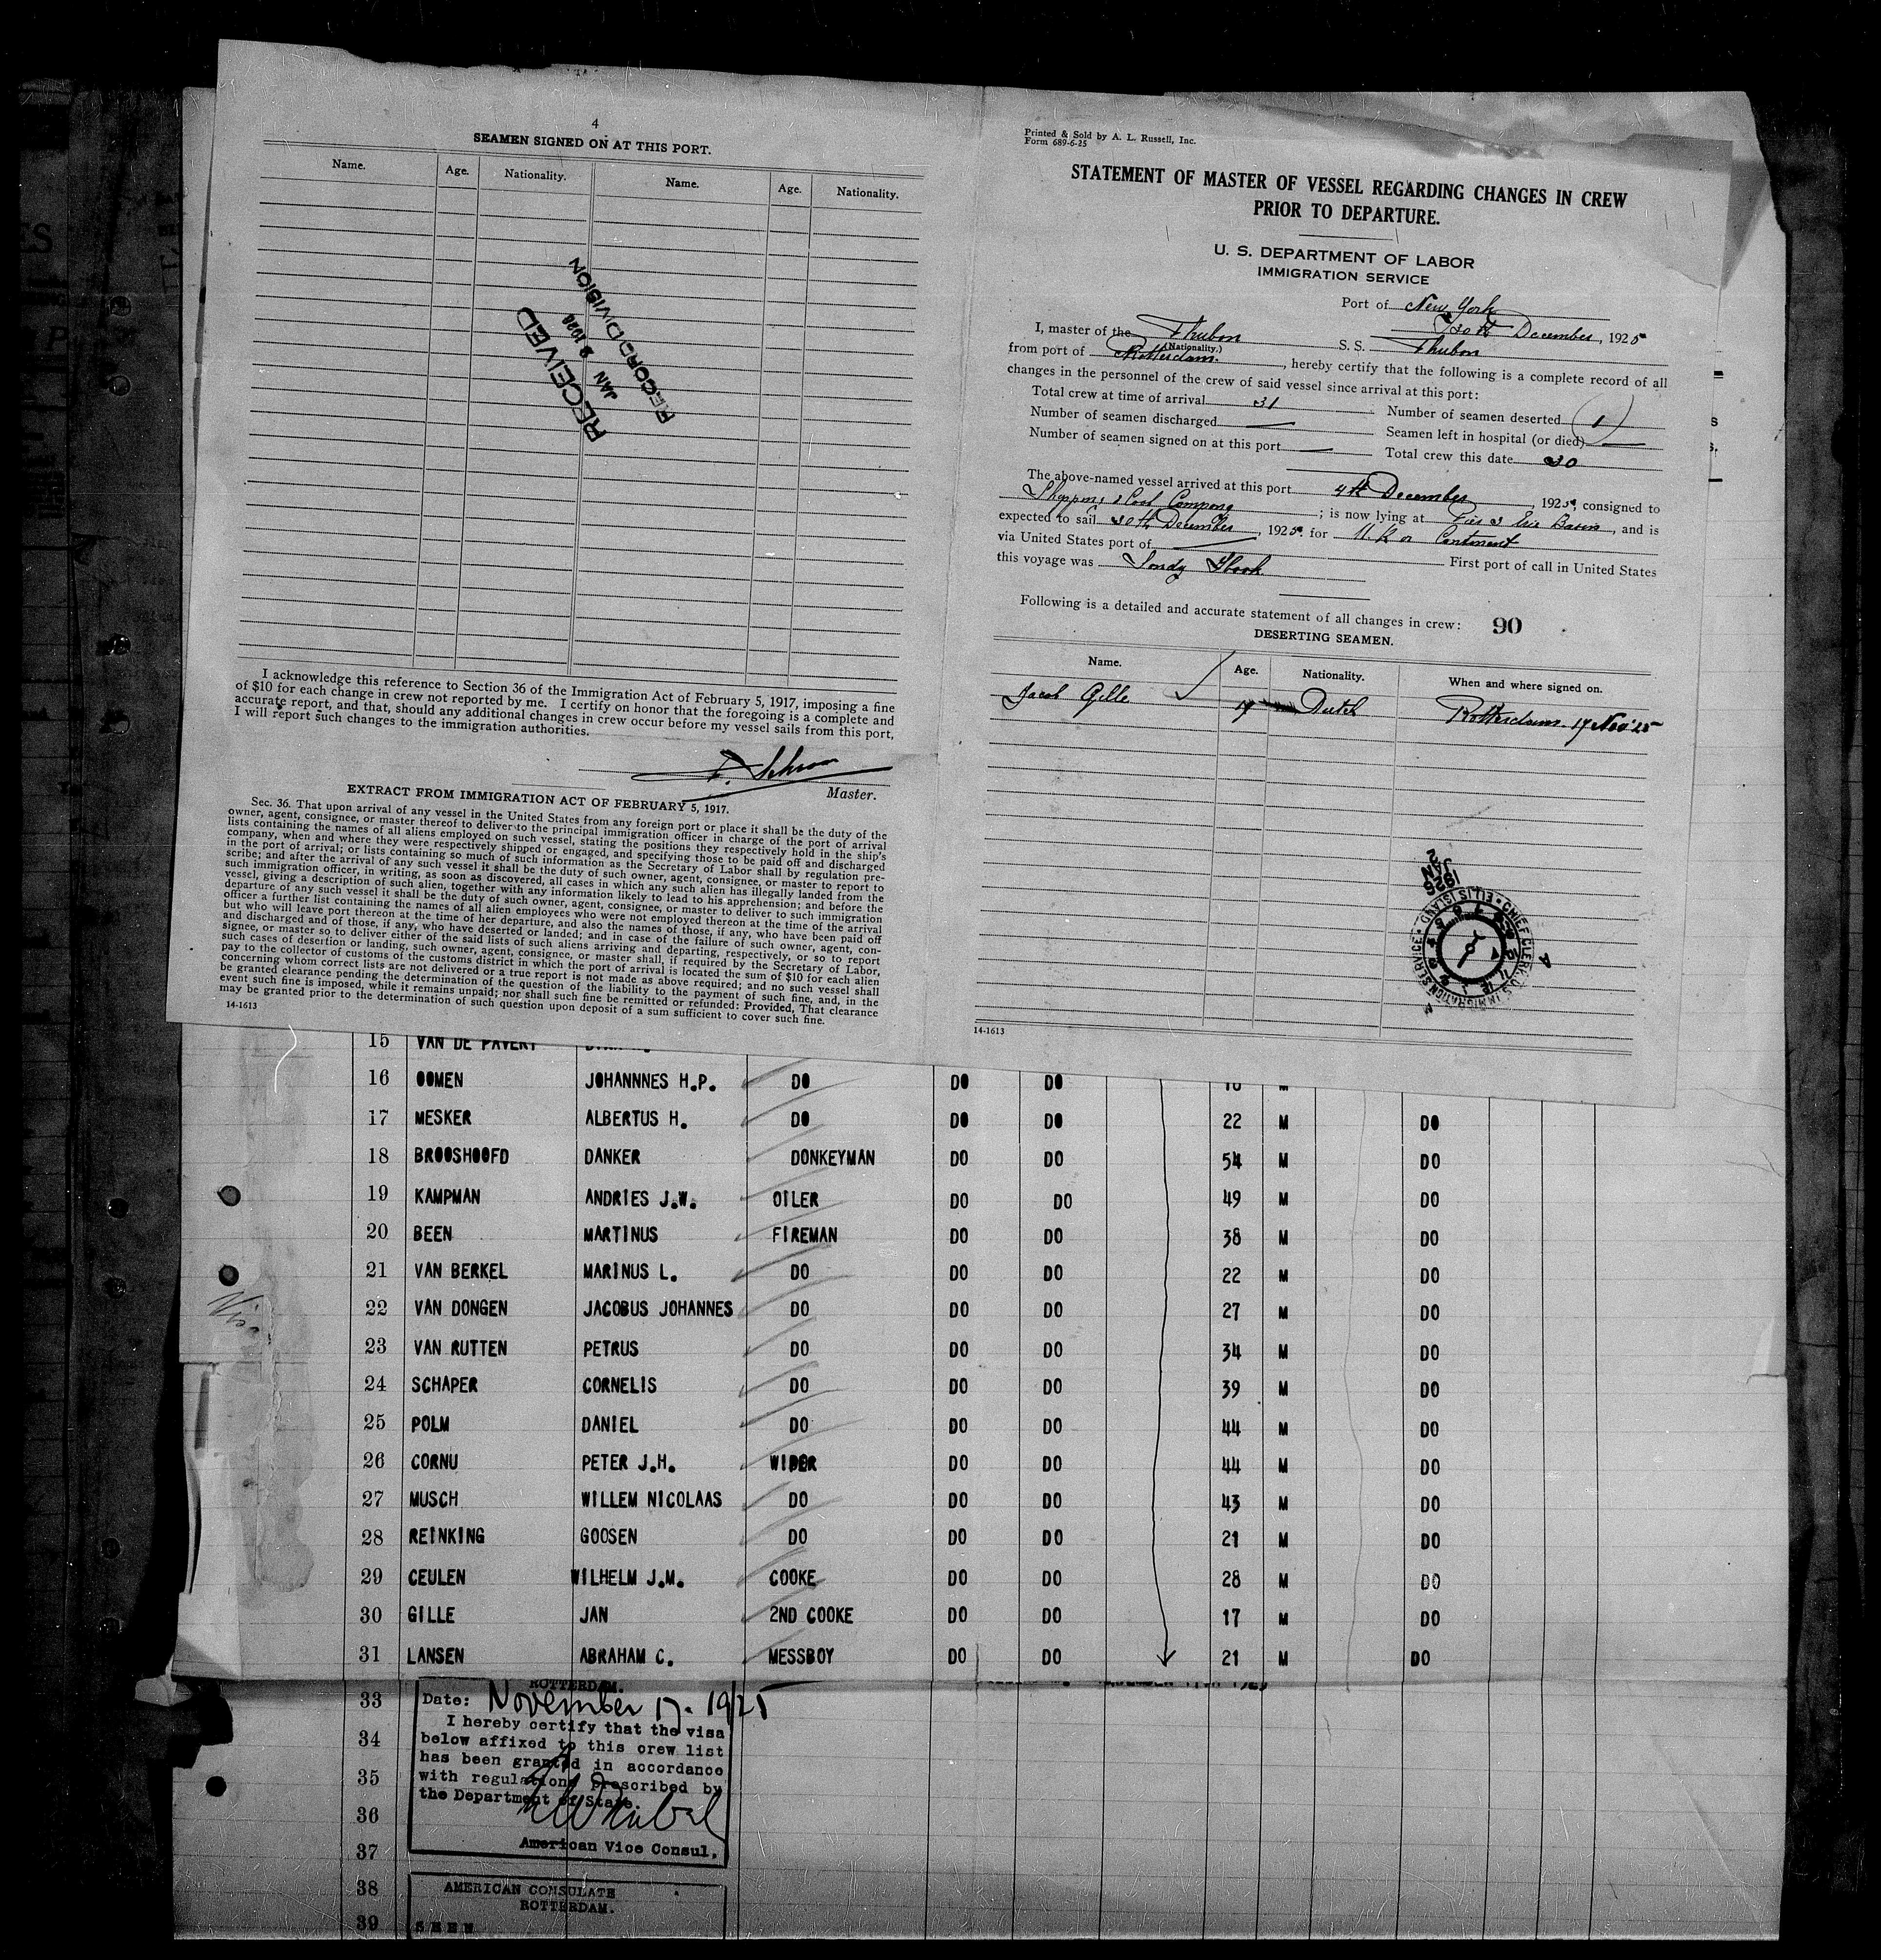 4
SEAMEN SIGNED ON AT THIS PORT.
Name. Age. Nationality. Name. Age. Nationality.
RECEIVED
JAN 2 1926
RECORD DIVISION
I acknowledge this reference to Section 36 of the Immigration Act of February 5, 1917, imposing a fine
of $10 for each change in crew not reported by me. I certify on honor that the foregoing is a complete and
accurate report, and that, should any additional changes in crew occur before my vessel sails from this port,
I will report such changes to the immigration authorities.
Master.
EXTRACT FROM IMMIGRATION ACT OF FEBRUARY 5, 1917.
Sec. 36. That upon arrival of any vessel in the United States from any foreign port or place it shall be the duty of the
owner, agent, consignee, or master thereof to deliver to the principal immigration officer in charge of the port of arrival
lists containing the names of all aliens employed on such vessel, stating the positions they respectively hold in the ship's
company, when and where they were respectively shipped or engaged, and specifying those to be paid off and discharged
in the port of arrival; or lists containing so much of such information as the Secretary of Labor shall by regulation pre-
scribe; and after the arrival of any such vessel it shall be the duty of such owner, agent, consignee, or master to report to
such immigration officer, in writing, as soon as discovered, all cases in which any such alien has illegally landed from the
vessel, giving a description of such alien, together with any information likely to lead to his apprehension; and before the
departure of any such vessel it shall be the duty of such owner, agent, consignee, or master to deliver to such immigration
officer a further list containing the names of all alien employees who were not employed thereon at the time of the arrival
but who will leave port thereon at the time of her departure, and also the names of those, if any, who have been paid off
and discharged and of those, if any, who have deserted or landed; and in case of the failure of such owner, agent, con-
signee, or master so to deliver either of the said lists of such aliens arriving and departing, respectively, or so to report
such cases of desertion or landing, such owner, agent, consignee, or master shall, if required by the Secretary of Labor,
pay to the collector of customs of the customs district in which the port of arrival is located the sum of $10 for each alien
concerning whom correct lists are not delivered or a true report is not made as above required; and no such vessel shall
be granted clearance pending the determination of the question of the liability to the payment of such fine, and, in the
event such fine is imposed, while it remains unpaid; nor shall such fine be remitted or refunded: Provided, That clearance
may be granted prior to the determination of such question upon deposit of a sum sufficient to cover such fine.
14-1613
Printed & Sold by A. L. Russell, Inc.
Form 689-6-25
STATEMENT OF MASTER OF VESSEL REGARDING CHANGES IN CREW
PRIOR TO DEPARTURE.
U. S. DEPARTMENT OF LABOR
IMMIGRATION SERVICE
Port of New York
30th December, 1925
I, master of the Thubon S. S. Thubon
(Nationality.)
from port of Rotterdam, hereby certify that the following is a complete record of all
changes in the personnel of the crew of said vessel since arrival at this port:
Total crew at time of arrival 31 Number of seamen deserted 1
Number of seamen discharged — Seamen left in hospital (or died) —
Number of seamen signed on at this port — Total crew this date 30
The above-named vessel arrived at this port 4th December, 1925, consigned to
Shipping & Coal Company; is now lying at Pier 3 Erie Basin, and is
expected to sail 30th December, 1925 for U.K or Continent
via United States port of — First port of call in United States
this voyage was Sandy Hook
Following is a detailed and accurate statement of all changes in crew: 90
DESERTING SEAMEN.
Name. Age. Nationality. When and where signed on.
Jacob Gille 17 Dutch Rotterdam. 17 Nov '25
JAN 2 1926
CHIEF CLERK U.S. IMMIGRATION SERVICE ELLIS ISLAND
14-1613
15 VAN DE PAVERT
16 OOMEN JOHANNNES H.P. DO DO DO M
17 MESKER ALBERTUS H. DO DO DO 22 M DO
18 BROOSHOOFD DANKER DONKEYMAN DO DO 54 M DO
19 KAMPMAN ANDRIES J.W. OILER DO DO 49 M DO
20 BEEN MARTINUS FIREMAN DO DO 38 M DO
21 VAN BERKEL MARINUS L. DO DO DO 22 M DO
22 VAN DONGEN JACOBUS JOHANNES DO DO DO 27 M DO
23 VAN RUTTEN PETRUS DO DO DO 34 M DO
24 SCHAPER CORNELIS DO DO DO 39 M DO
25 POLM DANIEL DO DO DO 44 M DO
26 CORNU PETER J.H. WIPER DO DO 44 M DO
27 MUSCH WILLEM NICOLAAS DO DO DO 43 M DO
28 REINKING GOOSEN DO DO DO 21 M DO
29 CEULEN WILHELM J.M. COOKE DO DO 28 M DO
30 GILLE JAN 2ND COOKE DO DO 17 M DO
31 LANSEN ABRAHAM C. MESSBOY DO DO 21 M DO
ROTTERDAM.
33 Date: November 17. 1925
I hereby certify that the visa
34 below affixed to this crew list
has been granted in accordance
35 with regulations prescribed by
the Department of State.
36
American Vice Consul.
37
38 AMERICAN CONSULATE
ROTTERDAM.
39 SEEN